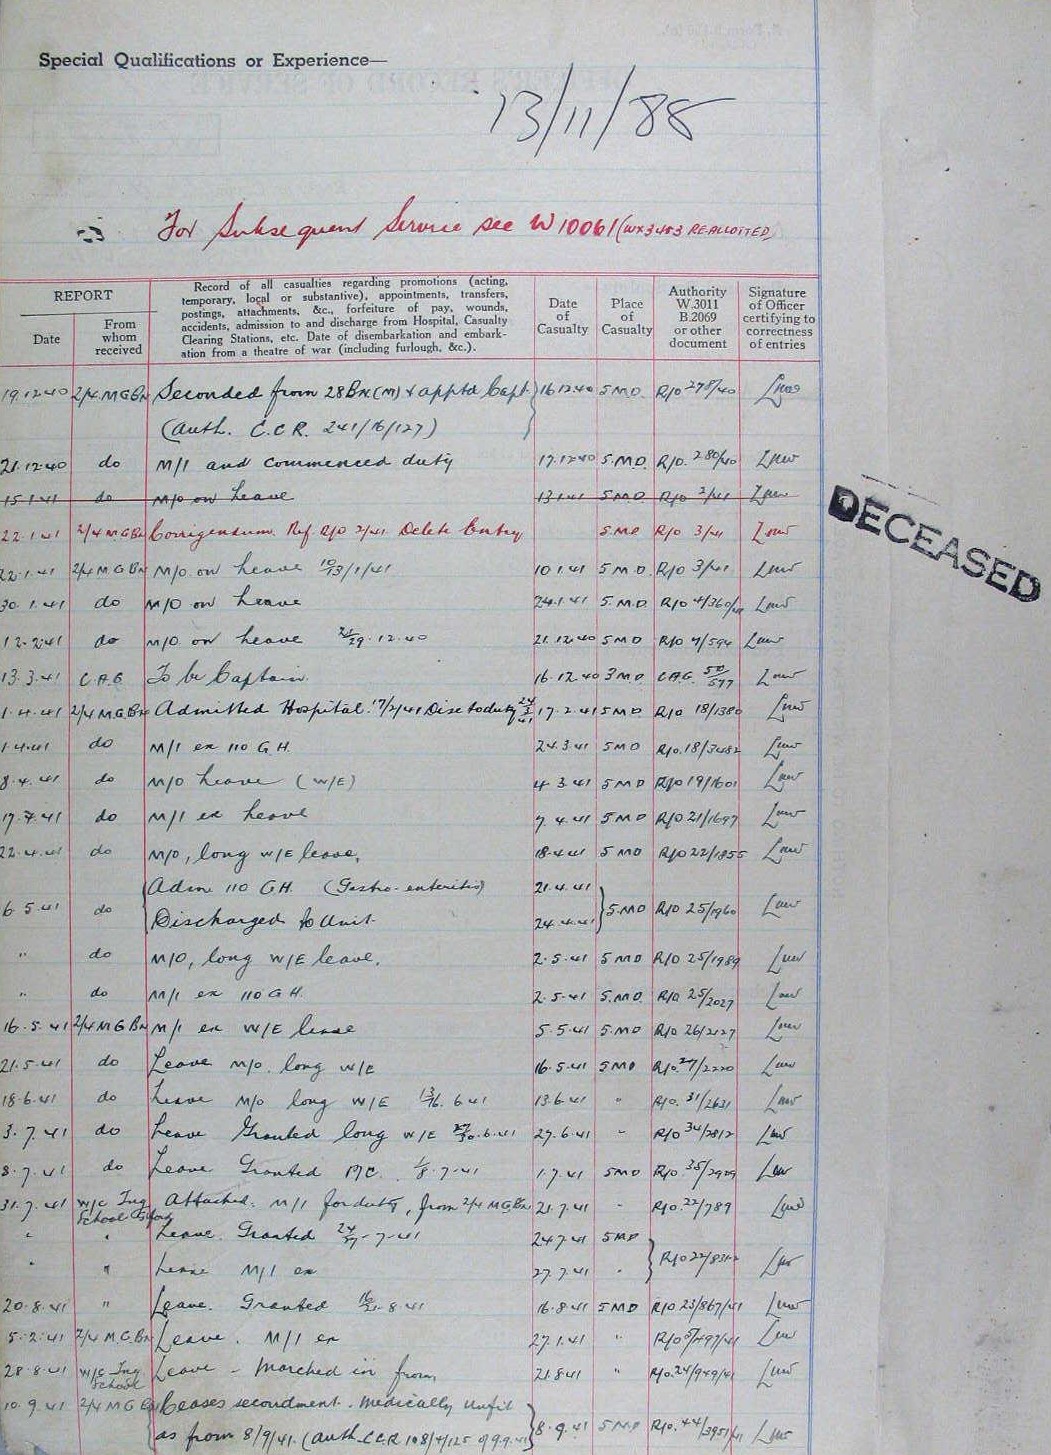 Special Qualifications or Experience—
13/11/88
For Subsequent Service see W10061 (WX3453 REALLOTTED)
REPORT
Date
From whom received
Record of all casualties regarding promotions (acting,
temporary, local or substantive), appointments, transfers,
postings, attachments, &c., forfeiture of pay, wounds,
accidents, admission to and discharge from Hospital, Casualty
Clearing Stations, etc. Date of disembarkation and embark-
ation from a theatre of war (including furlough, &c.).
Date of Casualty
Place of Casualty
Authority W.3011 B.2069 or other document
Signature of Officer certifying to correctness of entries
19.12.40 2/4 MGBn Seconded from 28Bn (M) & apptd Capt. 16.12.40 5MD R/o 278/40
(Auth. C.C.R. 241/16/127)
21.12.40 do M/I and commenced duty 17.12.40 5.M.D. R/O. 280/40
15.1.41 do M/O on leave 13.1.41 5MD R/o 2/41
22.1.41 2/4 MGBn Corrigendum. Ref. R/O 2/41 Delete Entry 5MD R/o 3/41
22.1.41 2/4 MGBn M/O on leave 10/13/1/41 10.1.41 5MD R/o 3/41
30.1.41 do M/O on leave 24.1.41 5.M.D. R/O 4/360
12.2.41 do M/O on leave 29.12.40 21.12.40 5MD R/o 7/594
13.3.41 C.A.G To be Captain 16.12.40 3MD CAG. 577
1.4.41 2/4 M.G.Bn Admitted Hospital 17/2/41 Disc to duty 24/3/41 17.2.41 5MD R/o 18/1380
1.4.41 do M/I ex 110 G.H. 24.3.41 5MD R/o. 18/3482
8.4.41 do M/O leave (W/E) 4.3.41 5MD R/o 19/1601
17.7.41 do M/I ex leave 7.4.41 5MD R/O 21/1697
22.4.41 do M/O, long W/E leave, 18.4.41 5MD R/o 22/1855
Adm 110 G.H. (Gastro-enteritis) 21.4.41
6.5.41 do 5.MD R/O 25/1960
Discharged to Unit 24.4.41
" do M/O, long W/E leave. 2.5.41 5MD R/O 25/1989
" do M/I ex 110 G.H. 2.5.41 5.MD R/o 25/2027
16.5.41 2/4 MGBn M/I ex W/E leave 5.5.41 5.MD R/o 26/2127
21.5.41 do Leave M/O. long W/E 16.5.41 5MD R/o. 27/2220
18.6.41 do Leave M/O long W/E 13/16.6.41 13.6.41 " R/O. 31/2631
3.7.41 do Leave Granted long W/E 27/30.6.41 27.6.41 " R/o 34/2812
8.7.41 do Leave Granted 1/8.7.41 1.7.41 5MD R/o. 35/2909
31.7.41 W/C Tng School Attached. M/I for duty, from 2/4 MGBn 21.7.41 " R/o. 22/789
" " Leave Granted 24/27.7.41 24.7.41 5MD
" " Leave M/I ex 27.7.41 "
20.8.41 " Leave. Granted 16/21.8.41 16.8.41 5MD R/O 23/867/41
5.2.41 2/4 M.G.Bn Leave. M/I ex 27.1.41 " R/O 5/497/41
28.8.41 W/C Tng School Leave - Marched in from 21.8.41 " R/o. 24/949/41
10.9.41 2/4 MG Bn Ceases secondment. Medically unfit
as from 8/9/41. (Auth. CCR 108/4/125 of 9.9.41) 8.9.41 5MD R/O. 44/3951/41
DECEASED